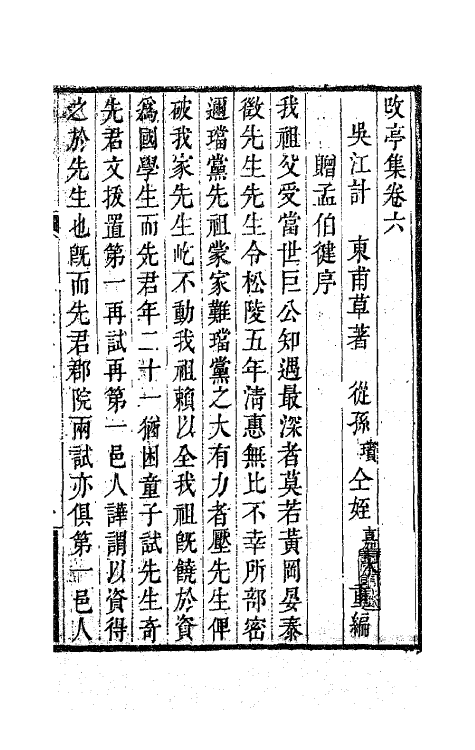 改亭集卷六
吳江計 東甫草著 從孫 璸 仝姪 嘉 重編
贈孟伯健序
我祖父受當世巨公知遇最深者莫若黃岡晏泰
徵先生先生令松陵五年清惠無比不幸所部密
邇璫黨先祖蒙家難璫黨之大有力者壓先生俾
破我家先生屹不動我祖賴以全我祖旣饒於資
爲國學生而先君年二十一猶困童子試先生奇
先君文拔置第一再試再第一邑人譁謂以資得
之於先生也旣而先君郡院兩試亦俱第一邑人